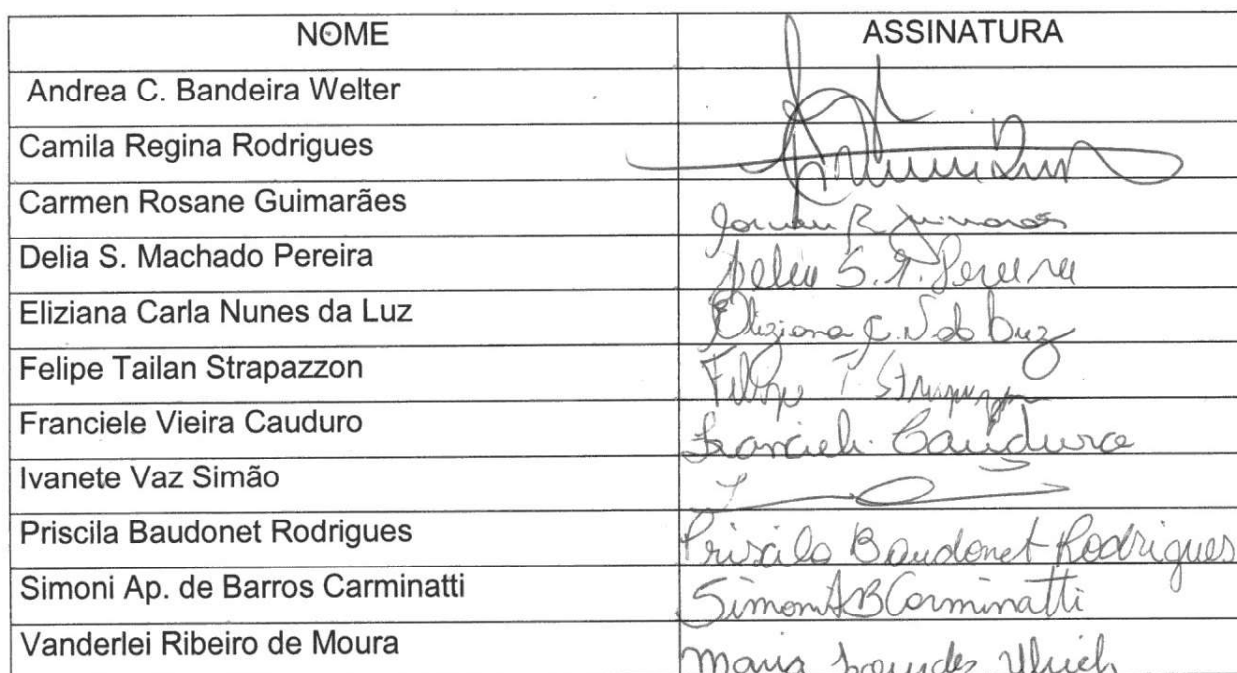 NOME ASSINATURA
Andrea C. Bandeira Welter
Camila Regina Rodrigues
Carmen Rosane Guimarães
Delia S. Machado Pereira Pereira
Eliziana Carla Nunes da Luz Eliziana C. N da Luz
Felipe Tailan Strapazzon Felipe T.
Franciele Vieira Cauduro Franciele Cauduro
Ivanete Vaz Simão
Priscila Baudonet Rodrigues Priscila Baudonet Rodrigues
Simoni Ap. de Barros Carminatti Simoni A B Carminatti
Vanderlei Ribeiro de Moura Maria Lourdes Ulrich